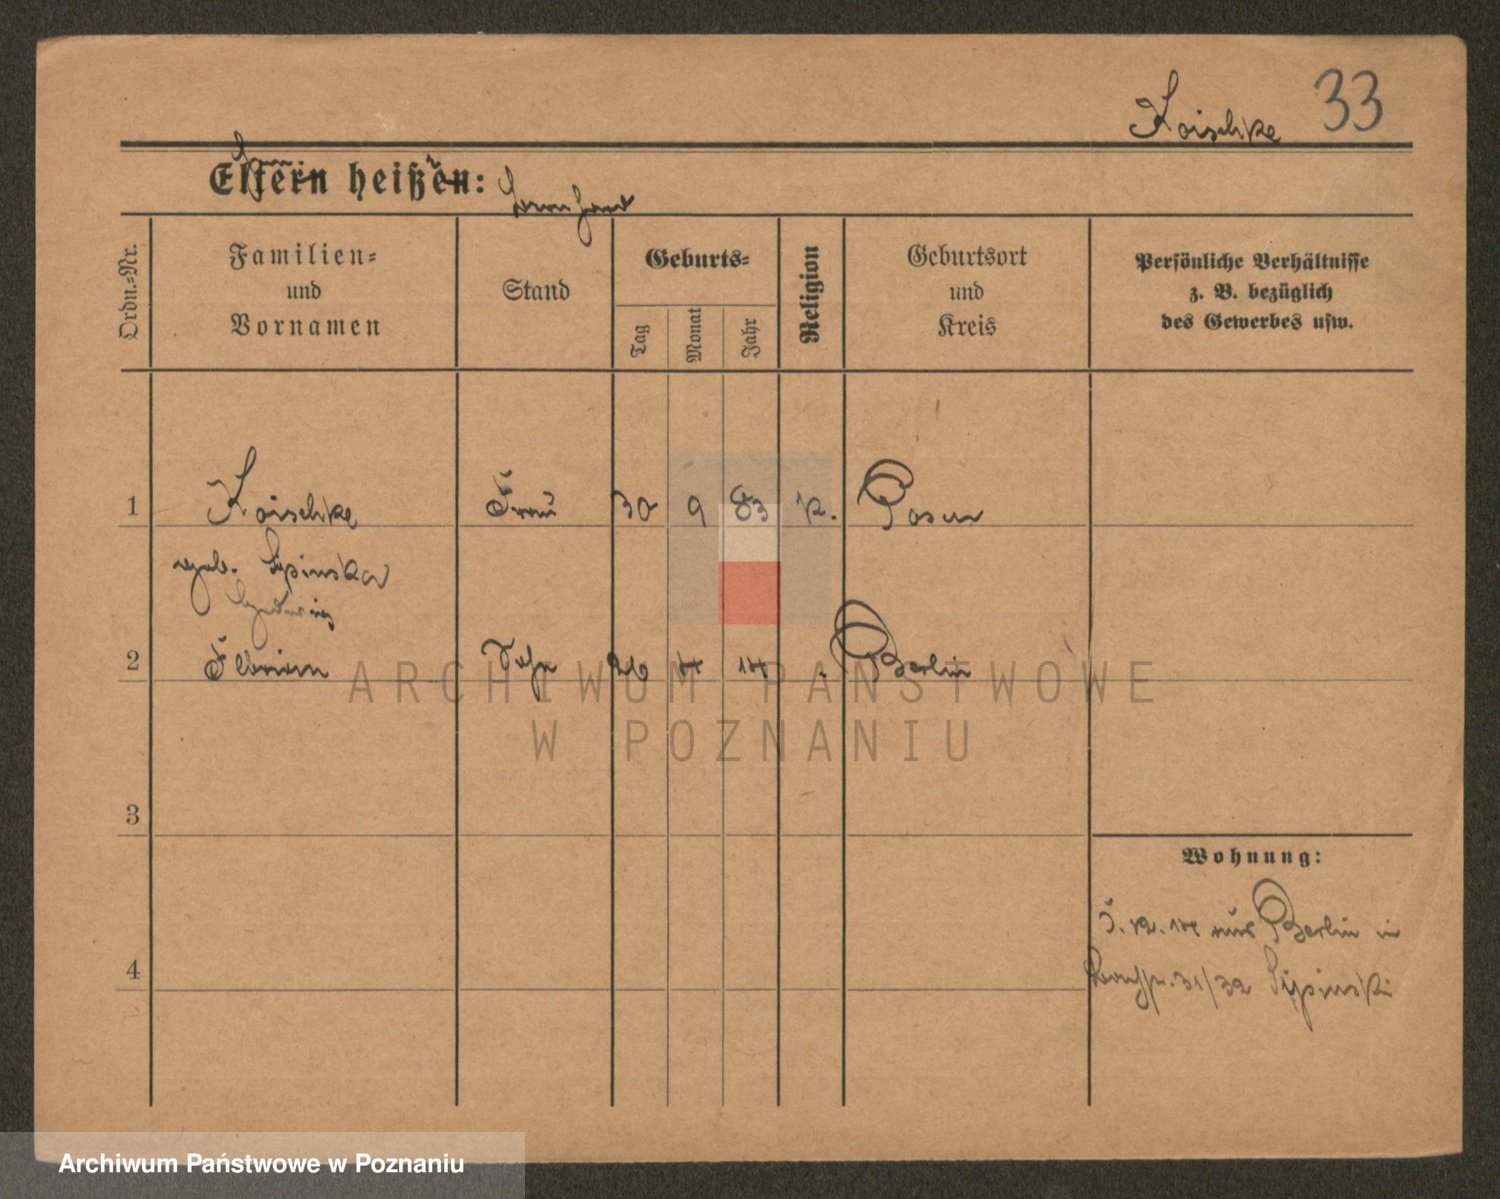 33
Koischke
Eltern heißen:
Ordn.-Nr.
Familien-
und
Vornamen
Stand
Geburts-
Tag
Monat
Jahr
Religion
Geburtsort
und
Kreis
Persönliche Verhältnisse
z. B. bezüglich
des Gewerbes usw.
1 Koischke Frau 30 9 83 k. Posen
geb. Lipinska
Hedwig
2 Florian Sohn 26 4 14 Berlin
3
4
Wohnung:
14 aus Berlin in
31/32 Lipinski
ARCHIWUM PAŃSTWOWE
W POZNANIU
Archiwum Państwowe w Poznaniu